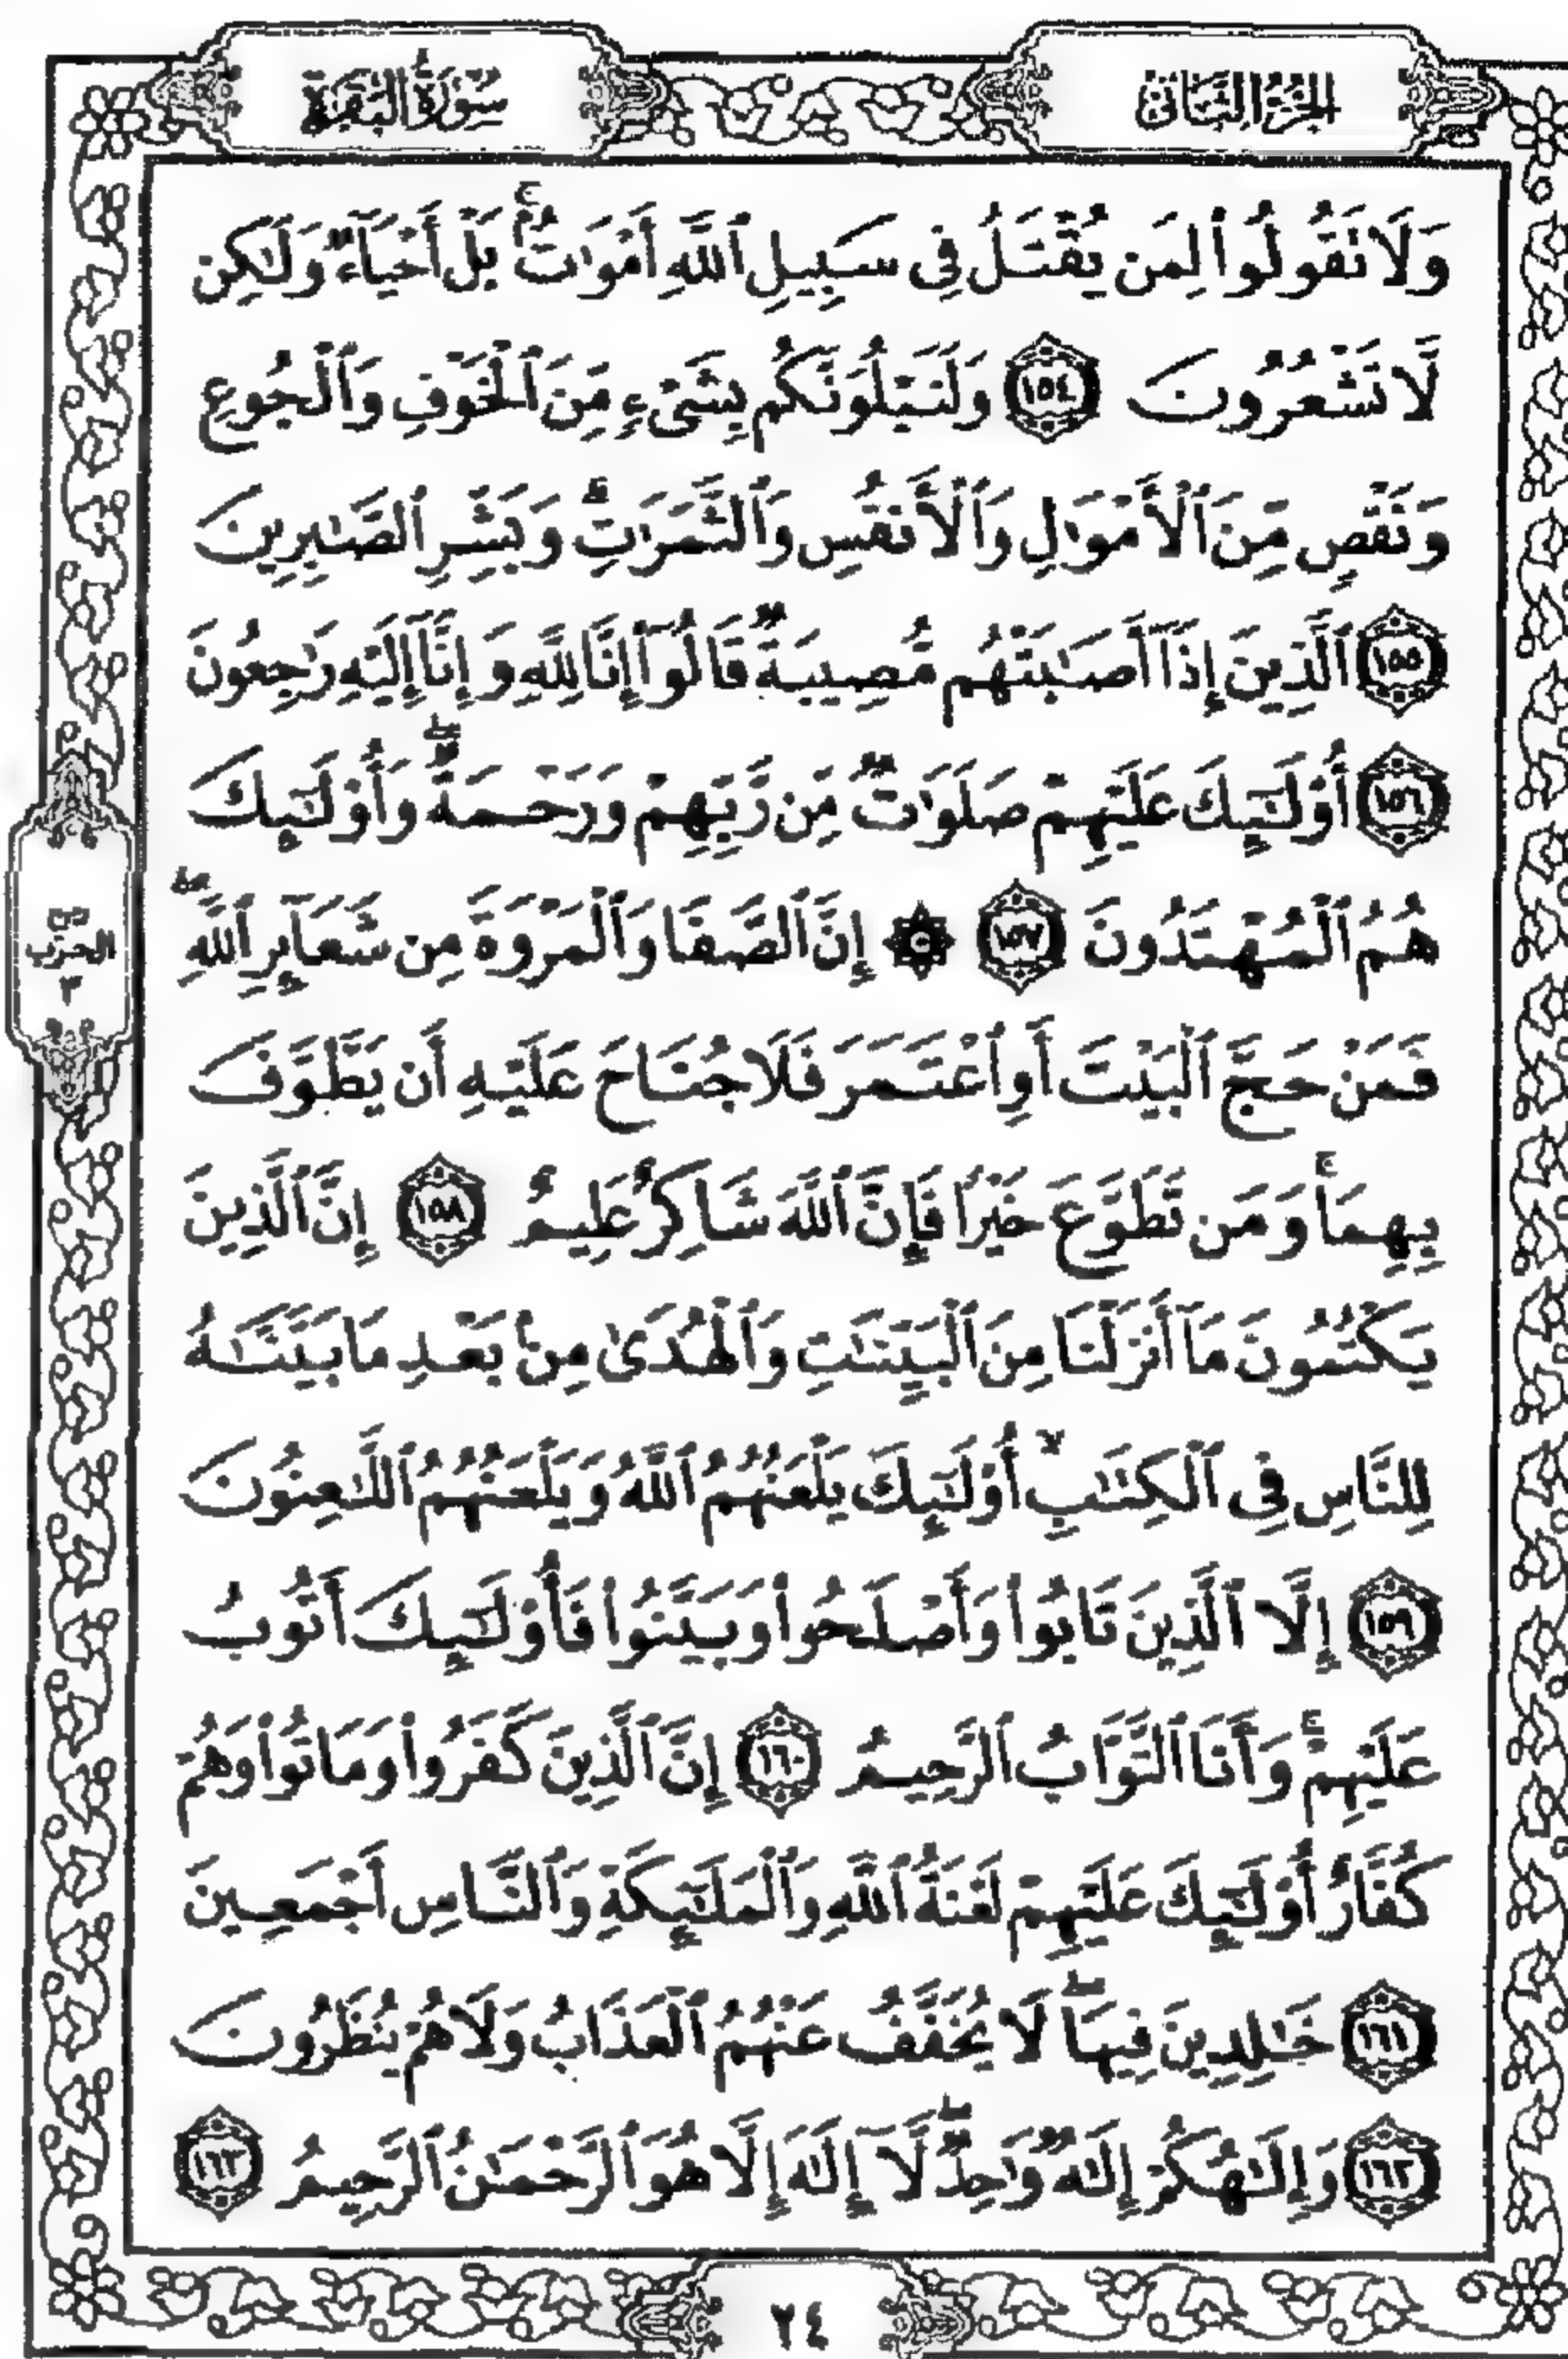 الجزء الثاني
سورة البقرة
وَلَا تَقُولُوا۟ لِمَن يُقْتَلُ فِى سَبِيلِ ٱللَّهِ أَمْوَٰتٌۢ ۚ بَلْ أَحْيَآءٌ وَلَٰكِن
لَّا تَشْعُرُونَ ١٥٤ وَلَنَبْلُوَنَّكُم بِشَىْءٍ مِّنَ ٱلْخَوْفِ وَٱلْجُوعِ
وَنَقْصٍ مِّنَ ٱلْأَمْوَٰلِ وَٱلْأَنفُسِ وَٱلثَّمَرَٰتِ ۗ وَبَشِّرِ ٱلصَّٰبِرِينَ
١٥٥ ٱلَّذِينَ إِذَآ أَصَٰبَتْهُم مُّصِيبَةٌ قَالُوٓا۟ إِنَّا لِلَّهِ وَإِنَّآ إِلَيْهِ رَٰجِعُونَ
١٥٦ أُو۟لَٰٓئِكَ عَلَيْهِمْ صَلَوَٰتٌ مِّن رَّبِّهِمْ وَرَحْمَةٌ ۖ وَأُو۟لَٰٓئِكَ
هُمُ ٱلْمُهْتَدُونَ ١٥٧ ۞ إِنَّ ٱلصَّفَا وَٱلْمَرْوَةَ مِن شَعَآئِرِ ٱللَّهِ ۖ
ربع
الحزب
٣
فَمَنْ حَجَّ ٱلْبَيْتَ أَوِ ٱعْتَمَرَ فَلَا جُنَاحَ عَلَيْهِ أَن يَطَّوَّفَ
بِهِمَا ۚ وَمَن تَطَوَّعَ خَيْرًا فَإِنَّ ٱللَّهَ شَاكِرٌ عَلِيمٌ ١٥٨ إِنَّ ٱلَّذِينَ
يَكْتُمُونَ مَآ أَنزَلْنَا مِنَ ٱلْبَيِّنَٰتِ وَٱلْهُدَىٰ مِنۢ بَعْدِ مَا بَيَّنَّٰهُ
لِلنَّاسِ فِى ٱلْكِتَٰبِ ۙ أُو۟لَٰٓئِكَ يَلْعَنُهُمُ ٱللَّهُ وَيَلْعَنُهُمُ ٱللَّٰعِنُونَ
١٥٩ إِلَّا ٱلَّذِينَ تَابُوا۟ وَأَصْلَحُوا۟ وَبَيَّنُوا۟ فَأُو۟لَٰٓئِكَ أَتُوبُ
عَلَيْهِمْ ۚ وَأَنَا ٱلتَّوَّابُ ٱلرَّحِيمُ ١٦٠ إِنَّ ٱلَّذِينَ كَفَرُوا۟ وَمَاتُوا۟ وَهُمْ
كُفَّارٌ أُو۟لَٰٓئِكَ عَلَيْهِمْ لَعْنَةُ ٱللَّهِ وَٱلْمَلَٰٓئِكَةِ وَٱلنَّاسِ أَجْمَعِينَ
١٦١ خَٰلِدِينَ فِيهَا ۖ لَا يُخَفَّفُ عَنْهُمُ ٱلْعَذَابُ وَلَا هُمْ يُنظَرُونَ
١٦٢ وَإِلَٰهُكُمْ إِلَٰهٌ وَٰحِدٌ ۖ لَّآ إِلَٰهَ إِلَّا هُوَ ٱلرَّحْمَٰنُ ٱلرَّحِيمُ ١٦٣
٢٤